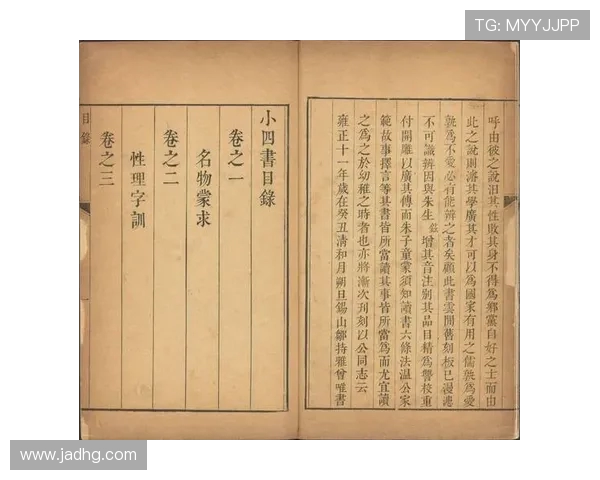 TG: MYYJJPP
呼由彼之說汨其性敗其身不得爲鄉黨自好之士而由
此之說則濬其學廣其才可以爲國家有用之儒孰爲愛
孰爲不愛必有能辨之者矣顧此書雲間舊刻板已漫漶
不可識辨因與朱生增其音注別其品目精爲讐校重
付開雕以廣其傳而朱子童蒙須知讀書六條法溫公家
範故事擇言等其書皆所當讀其事皆所當爲而尤宜讀
之爲之於幼稚之時者也亦將漸次刋刻以公同志云
雍正十一年歲在癸丑清和月朔旦錫山鄒持雅曾唯書
小四書目錄
卷之一
名物蒙求
卷之二
性理字訓
卷之三
目錄
www.jadhg.com
www.jadhg.com